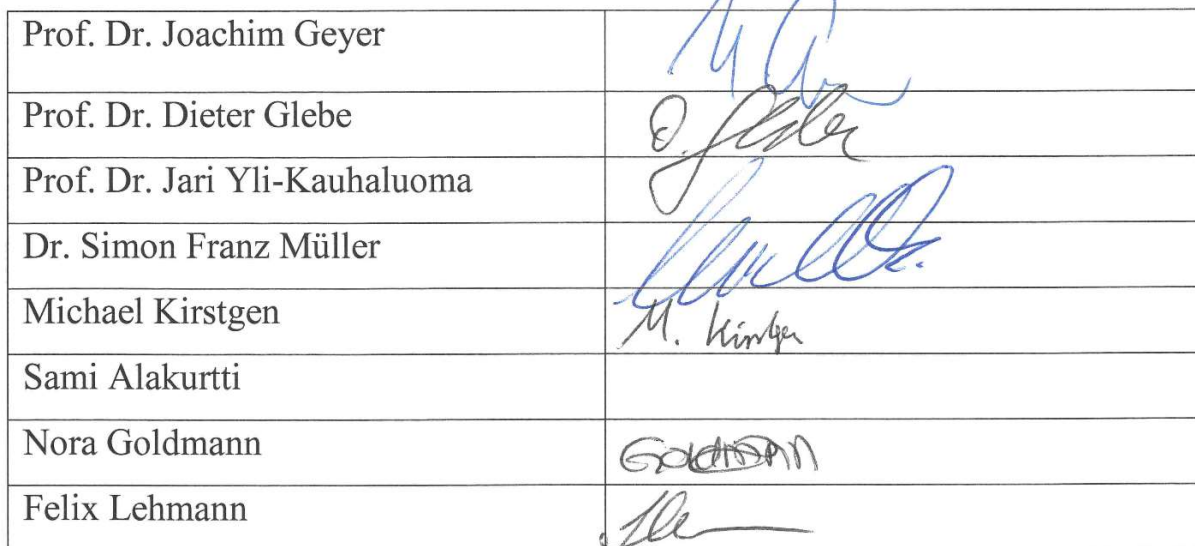 Prof. Dr. Joachim Geyer
Prof. Dr. Dieter Glebe
D. Glebe
Prof. Dr. Jari Yli-Kauhaluoma
Dr. Simon Franz Müller
Michael Kirstgen
M. Kirstgen
Sami Alakurtti
Nora Goldmann
Goldmann
Felix Lehmann